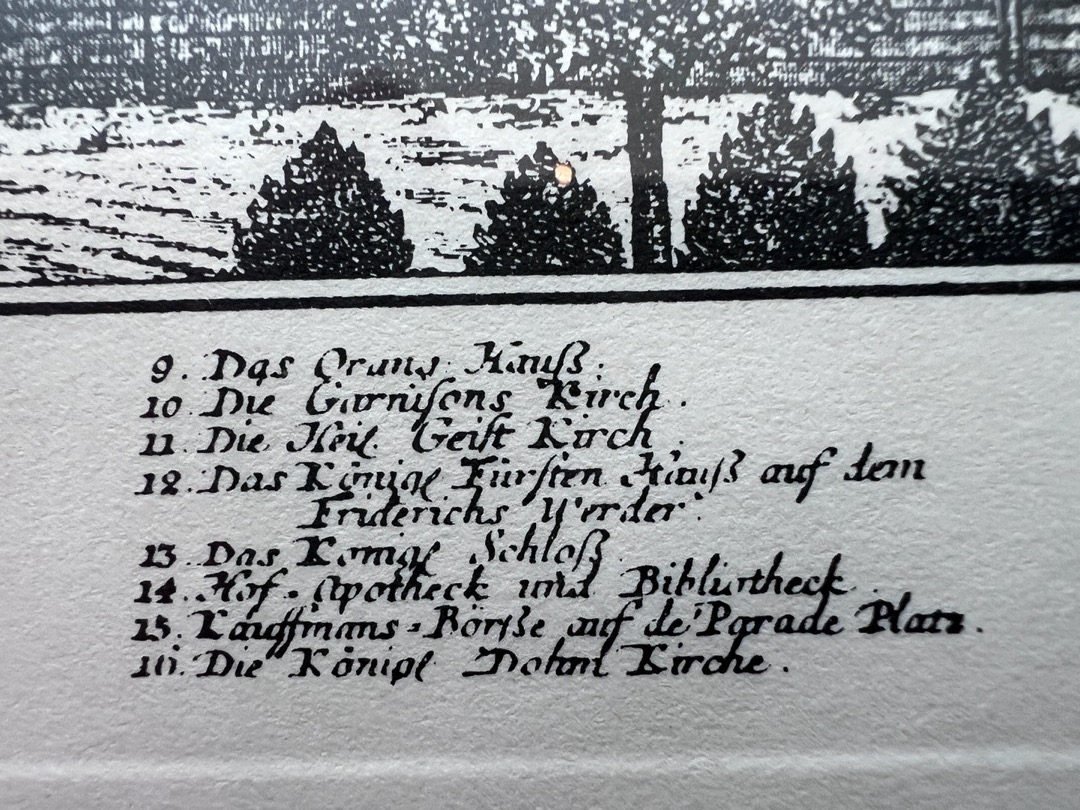 9. Das Orans Hauß.
10 Die Garnisons Kirch.
11 Die Heil. Geist Kirch.
12. Das Königl Fürsten Hauß auf dem
Friderichs Werder.
13. Das Königl Schloß
14. Hof-Apotheck und Bibliotheck.
15. Kauffmans-Börße auf de Parade Platz.
16. Die Königl Dohm Kirche.